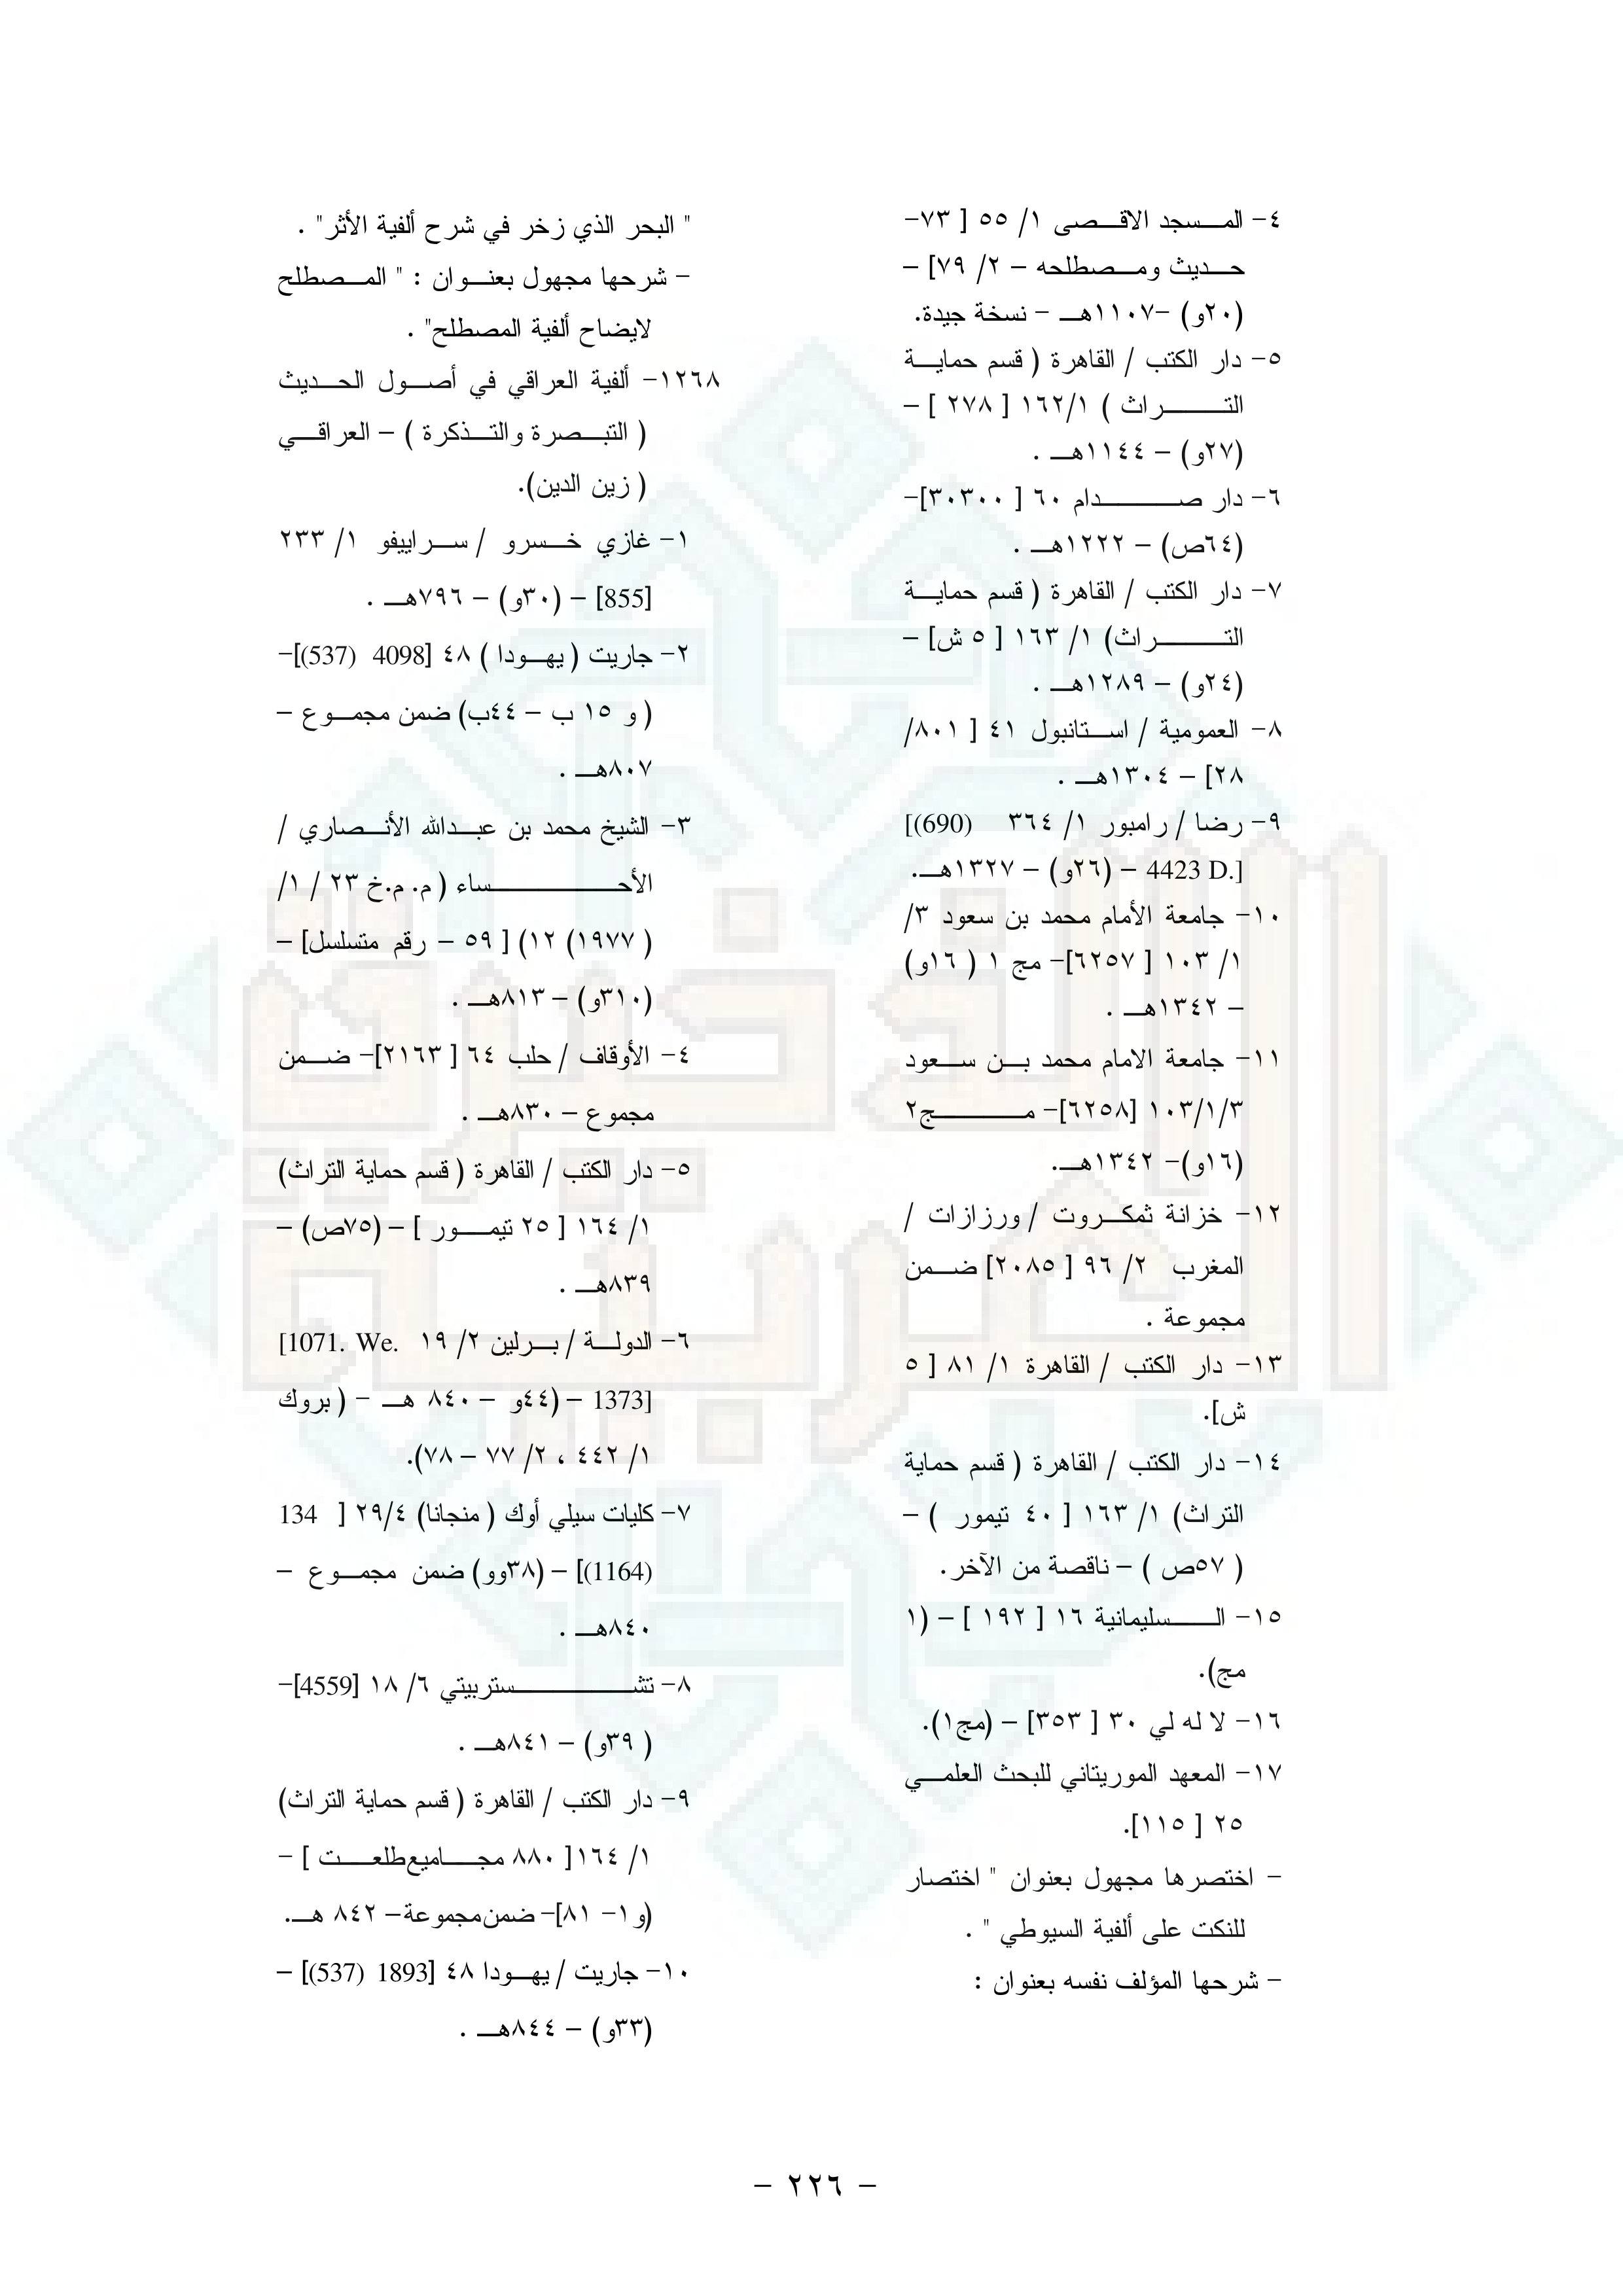 ٤- المسجد الاقصى ١/ ٥٥ [ ٧٣-
حديث ومصطلحه – ٢/ ٧٩] –
(٢٠و) –١١٠٧هـ – نسخة جيدة.
٥- دار الكتب / القاهرة ( قسم حماية
التراث ) ١/ ١٦٢ [ ٢٧٨ ] –
(٢٧و) – ١١٤٤هـ .
٦- دار صدام ٦٠ [ ٣٠٣٠٠]-
(٦٤ص) – ١٢٢٢هـ .
٧- دار الكتب / القاهرة ( قسم حماية
التراث) ١/ ١٦٣ [ ٥ ش] –
(٢٤و) – ١٢٨٩هـ .
٨- العمومية / استانبول ٤١ [ ٨٠١/
٢٨] – ١٣٠٤هـ .
٩- رضا / رامبور ١/ ٣٦٤ [(690)
4423 D.] – (٢٦و) – ١٣٢٧هـ.
١٠- جامعة الأمام محمد بن سعود ٣/
١/ ١٠٣ [ ٦٢٥٧]- مج ١ ( ١٦و)
– ١٣٤٢هـ .
١١- جامعة الامام محمد بن سعود
٣/ ١/ ١٠٣ [٦٢٥٨]- مج٢
(١٦و)- ١٣٤٢هـ.
١٢- خزانة ثمكروت / ورزازات /
المغرب ٢/ ٩٦ [ ٢٠٨٥] ضمن
مجموعة .
١٣- دار الكتب / القاهرة ١/ ٨١ [ ٥
ش].
١٤- دار الكتب / القاهرة ( قسم حماية
التراث) ١/ ١٦٣ [ ٤٠ تيمور ) –
( ٥٧ص ) – ناقصة من الآخر.
١٥- السليمانية ١٦ [ ١٩٢ ] – (١
مج).
١٦- لا له لي ٣٠ [ ٣٥٣] – (مج١).
١٧- المعهد الموريتاني للبحث العلمي
٢٥ [ ١١٥].
- اختصرها مجهول بعنوان " اختصار
للنكت على ألفية السيوطي " .
- شرحها المؤلف نفسه بعنوان :
" البحر الذي زخر في شرح ألفية الأثر" .
- شرحها مجهول بعنوان : " المصطلح
لايضاح ألفية المصطلح" .
١٢٦٨- ألفية العراقي في أصول الحديث
( التبصرة والتذكرة ) – العراقي
( زين الدين).
١- غازي خسرو / سراييفو ١/ ٢٣٣
[855] – (٣٠و) – ٧٩٦هـ .
٢- جاريت ( يهودا ) ٤٨ [4098 (537)]-
( و ١٥ ب – ٤٤ب) ضمن مجموع –
٨٠٧هـ .
٣- الشيخ محمد بن عبدالله الأنصاري /
الأحساء ( م. م.خ ٢٣ / ١/
( ١٩٧٧) ١٢) [ ٥٩ – رقم متسلسل] –
(٣١٠و) – ٨١٣هـ .
٤- الأوقاف / حلب ٦٤ [ ٢١٦٣]- ضمن
مجموع – ٨٣٠هـ .
٥- دار الكتب / القاهرة ( قسم حماية التراث)
١/ ١٦٤ [ ٢٥ تيمور ] – (٧٥ص) –
٨٣٩هـ .
٦- الدولة / برلين ٢/ ١٩ [1071. We.
1373] – (٤٤و – ٨٤٠ هـ – ( بروك
١/ ٤٤٢ ، ٢/ ٧٧ – ٧٨).
٧- كليات سيلي أوك ( منجانا) ٤/ ٢٩ [ 134
(1164)] – (٣٨وو) ضمن مجموع –
٨٤٠هـ .
٨- تشستربيتي ٦/ ١٨ [4559]-
( ٣٩و) – ٨٤١هـ .
٩- دار الكتب / القاهرة ( قسم حماية التراث)
١/ ١٦٤[ ٨٨٠ مجاميع طلعت ] –
(و١- ٨١]- ضمن مجموعة– ٨٤٢ هـ.
١٠- جاريت / يهودا ٤٨ [1893 (537)] –
(٣٣و) – ٨٤٤هـ .
- ٢٢٦ -